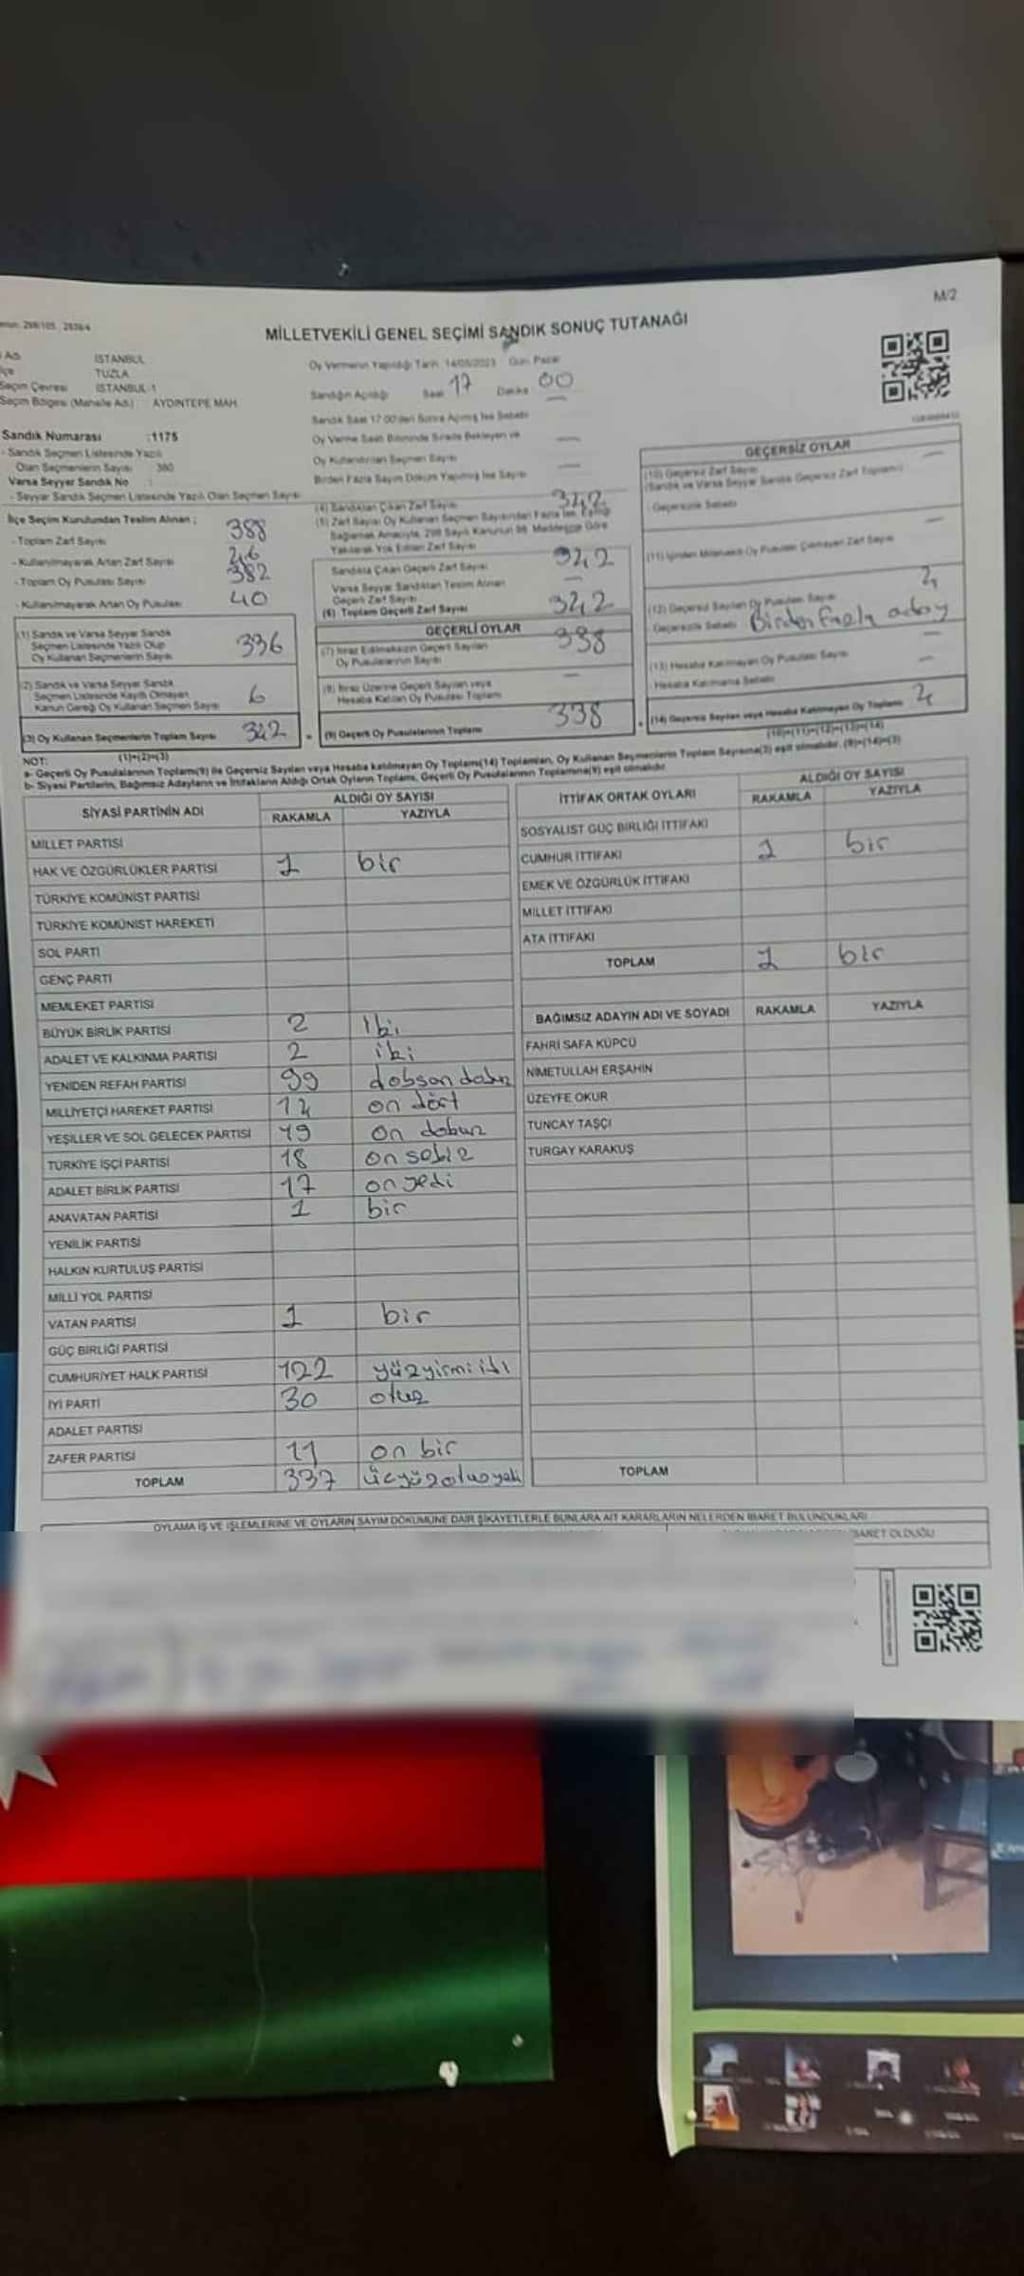 M/2
MİLLETVEKİLİ GENEL SEÇİMİ SANDIK SONUÇ TUTANAĞI
İSTANBUL
TUZLA
Seçim Çevresi İSTANBUL-1
Seçim Bölgesi (Mahalle Adı) AYDINTEPE MAH.
Sandık Numarası :1175
- Sandık Seçmen Listesinde Yazılı
Olan Seçmenlerin Sayısı 380
Varsa Seyyar Sandık No :
- Seyyar Sandık Seçmen Listesinde Yazılı Olan Seçmen Sayısı
Oy Vermenin Yapıldığı Tarih 14/05/2023 Gün Pazar
Sandığın Açıldığı Saat 17 Dakika 00
Sandık Saat 17.00'den Sonra Açılmış İse Sebebi
Oy Verme Saati Bitiminde Sırada Bekleyen ve
Oy Kullandırılan Seçmen Sayısı
Birden Fazla Sayım Döküm Yapılmış İse Sayısı
İlçe Seçim Kurulundan Teslim Alınan ;
- Toplam Zarf Sayısı 388
- Kullanılmayarak Artan Zarf Sayısı 46
- Toplam Oy Pusulası Sayısı 382
- Kullanılmayarak Artan Oy Pusulası 40
(1) Sandık ve Varsa Seyyar Sandık
Seçmen Listesinde Yazılı Olup
Oy Kullanan Seçmenlerin Sayısı 336
(2) Sandık ve Varsa Seyyar Sandık
Seçmen Listesinde Kayıtlı Olmayan
Kanun Gereği Oy Kullanan Seçmen Sayısı 6
(3) Oy Kullanan Seçmenlerin Toplam Sayısı 342
(1)+(2)=(3)
(4) Sandıktan Çıkan Zarf Sayısı 342
(5) Zarf Sayısı Oy Kullanan Seçmen Sayısından Fazla İse, Eşitliği
Sağlamak Amacıyla, 298 Sayılı Kanunun 98. Maddesine Göre
Yakılarak Yok Edilen Zarf Sayısı
Sandıkta Çıkan Geçerli Zarf Sayısı 342
Varsa Seyyar Sandıktan Teslim Alınan
Geçerli Zarf Sayısı
(6) Toplam Geçerli Zarf Sayısı 342
GEÇERLİ OYLAR
(7) İtiraz Edilmeksizin Geçerli Sayılan
Oy Pusulalarının Sayısı 338
(8) İtiraz Üzerine Geçerli Sayılan veya
Hesaba Katılan Oy Pusulası Toplamı
(9) Geçerli Oy Pusulalarının Toplamı 338
GEÇERSİZ OYLAR
(10) Geçersiz Zarf Sayısı
(Sandık ve Varsa Seyyar Sandık Geçersiz Zarf Toplamı)
Geçersizlik Sebebi
(11) İçinden Milletvekili Oy Pusulası Çıkmayan Zarf Sayısı
(12) Geçersiz Sayılan Oy Pusulası Sayısı 4
Geçersizlik Sebebi Birden Fazla aday
(13) Hesaba Katılmayan Oy Pusulası Sayısı
Hesaba Katılmama Sebebi
(14) Geçersiz Sayılan veya Hesaba Katılmayan Oy Toplamı 4
(10)+(11)+(12)+(13)=(14)
NOT:
a- Geçerli Oy Pusulalarının Toplamı(9) ile Geçersiz Sayılan veya Hesaba katılmayan Oy Toplamı(14) Toplamları, Oy Kullanan Seçmenlerin Toplam Sayısına(3) eşit olmalıdır. (9)+(14)=(3)
b- Siyasi Partilerin, Bağımsız Adayların ve İttifakların Aldığı Ortak Oyların Toplamı, Geçerli Oy Pusulalarının Toplamına(9) eşit olmalıdır.
SİYASİ PARTİNİN ADI ALDIĞI OY SAYISI
RAKAMLA YAZIYLA
MİLLET PARTİSİ
HAK VE ÖZGÜRLÜKLER PARTİSİ 1 bir
TÜRKİYE KOMÜNİST PARTİSİ
TÜRKİYE KOMÜNİST HAREKETİ
SOL PARTİ
GENÇ PARTİ
MEMLEKET PARTİSİ
BÜYÜK BİRLİK PARTİSİ 2 iki
ADALET VE KALKINMA PARTİSİ 2 iki
YENİDEN REFAH PARTİSİ 99 doksan dokuz
MİLLİYETÇİ HAREKET PARTİSİ 14 on dört
YEŞİLLER VE SOL GELECEK PARTİSİ 19 on dokuz
TÜRKİYE İŞÇİ PARTİSİ 18 on sekiz
ADALET BİRLİK PARTİSİ 17 on yedi
ANAVATAN PARTİSİ 1 bir
YENİLİK PARTİSİ
HALKIN KURTULUŞ PARTİSİ
MİLLİ YOL PARTİSİ
VATAN PARTİSİ 1 bir
GÜÇ BİRLİĞİ PARTİSİ
CUMHURİYET HALK PARTİSİ 122 yüzyirmi iki
İYİ PARTİ 30 otuz
ADALET PARTİSİ
ZAFER PARTİSİ 11 on bir
TOPLAM 337 üçyüzotuzyedi
İTTİFAK ORTAK OYLARI ALDIĞI OY SAYISI
RAKAMLA YAZIYLA
SOSYALİST GÜÇ BİRLİĞİ İTTİFAKI
CUMHUR İTTİFAKI 1 bir
EMEK VE ÖZGÜRLÜK İTTİFAKI
MİLLET İTTİFAKI
ATA İTTİFAKI
TOPLAM 1 bir
BAĞIMSIZ ADAYIN ADI VE SOYADI RAKAMLA YAZIYLA
FAHRİ SAFA KÜPCÜ
NİMETULLAH ERŞAHİN
ÜZEYFE OKUR
TUNCAY TAŞÇI
TURGAY KARAKUŞ
TOPLAM
OYLAMA İŞ VE İŞLEMLERİNE VE OYLARIN SAYIM DÖKÜMÜNE DAİR ŞİKAYETLERLE BUNLARA AİT KARARLARIN NELERDEN İBARET BULUNDUKLARI
İBARET OLDUĞU